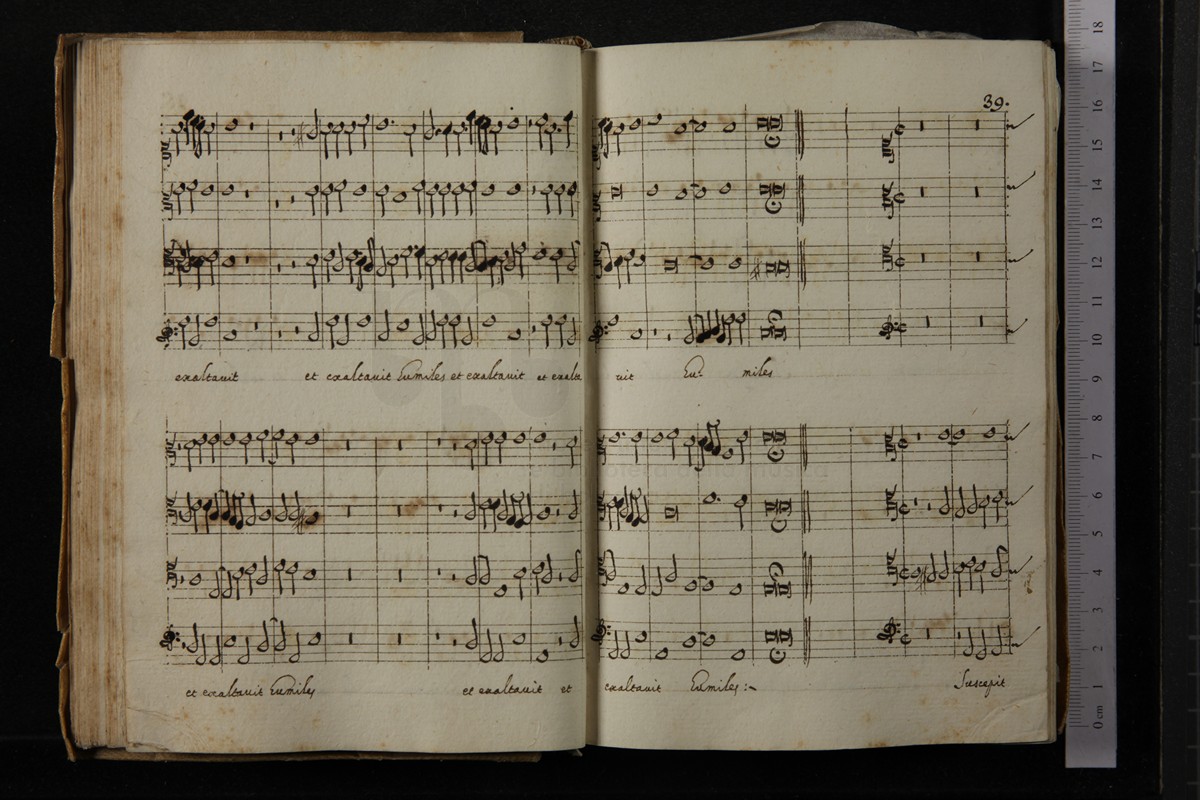 39.
exaltavit et exaltavit humiles et exaltavit et exalta vit hu- miles
et exaltavit humiles et exaltavit et exaltavit humiles :~ Suscepit
18
17
16
15
14
13
12
11
10
9
8
7
6
5
4
3
2
1
0 cm